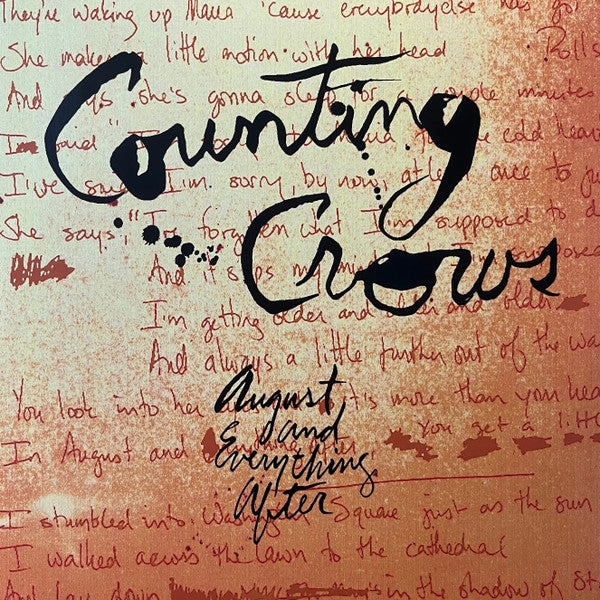 They're waking up Maria 'cause everybody else has
She makes a little motion with her head
Rolls
And says she's gonna sleep for a couple minutes
Counting
said
cold
I've said I'm sorry, by now, at least once to
Crows
She says, "I've forgotten what I'm supposed to
And it slips my mind
I'm getting older and older and older
And always a little further out of the
You look into her it's more than your
August
and
Everything
After
In August and
You get a
I stumbled into Washington Square just as the sun
I walked across the lawn to the cathedral
And lay down in the shadow of